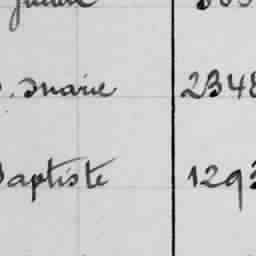 . Marie 2348
Baptiste 1293